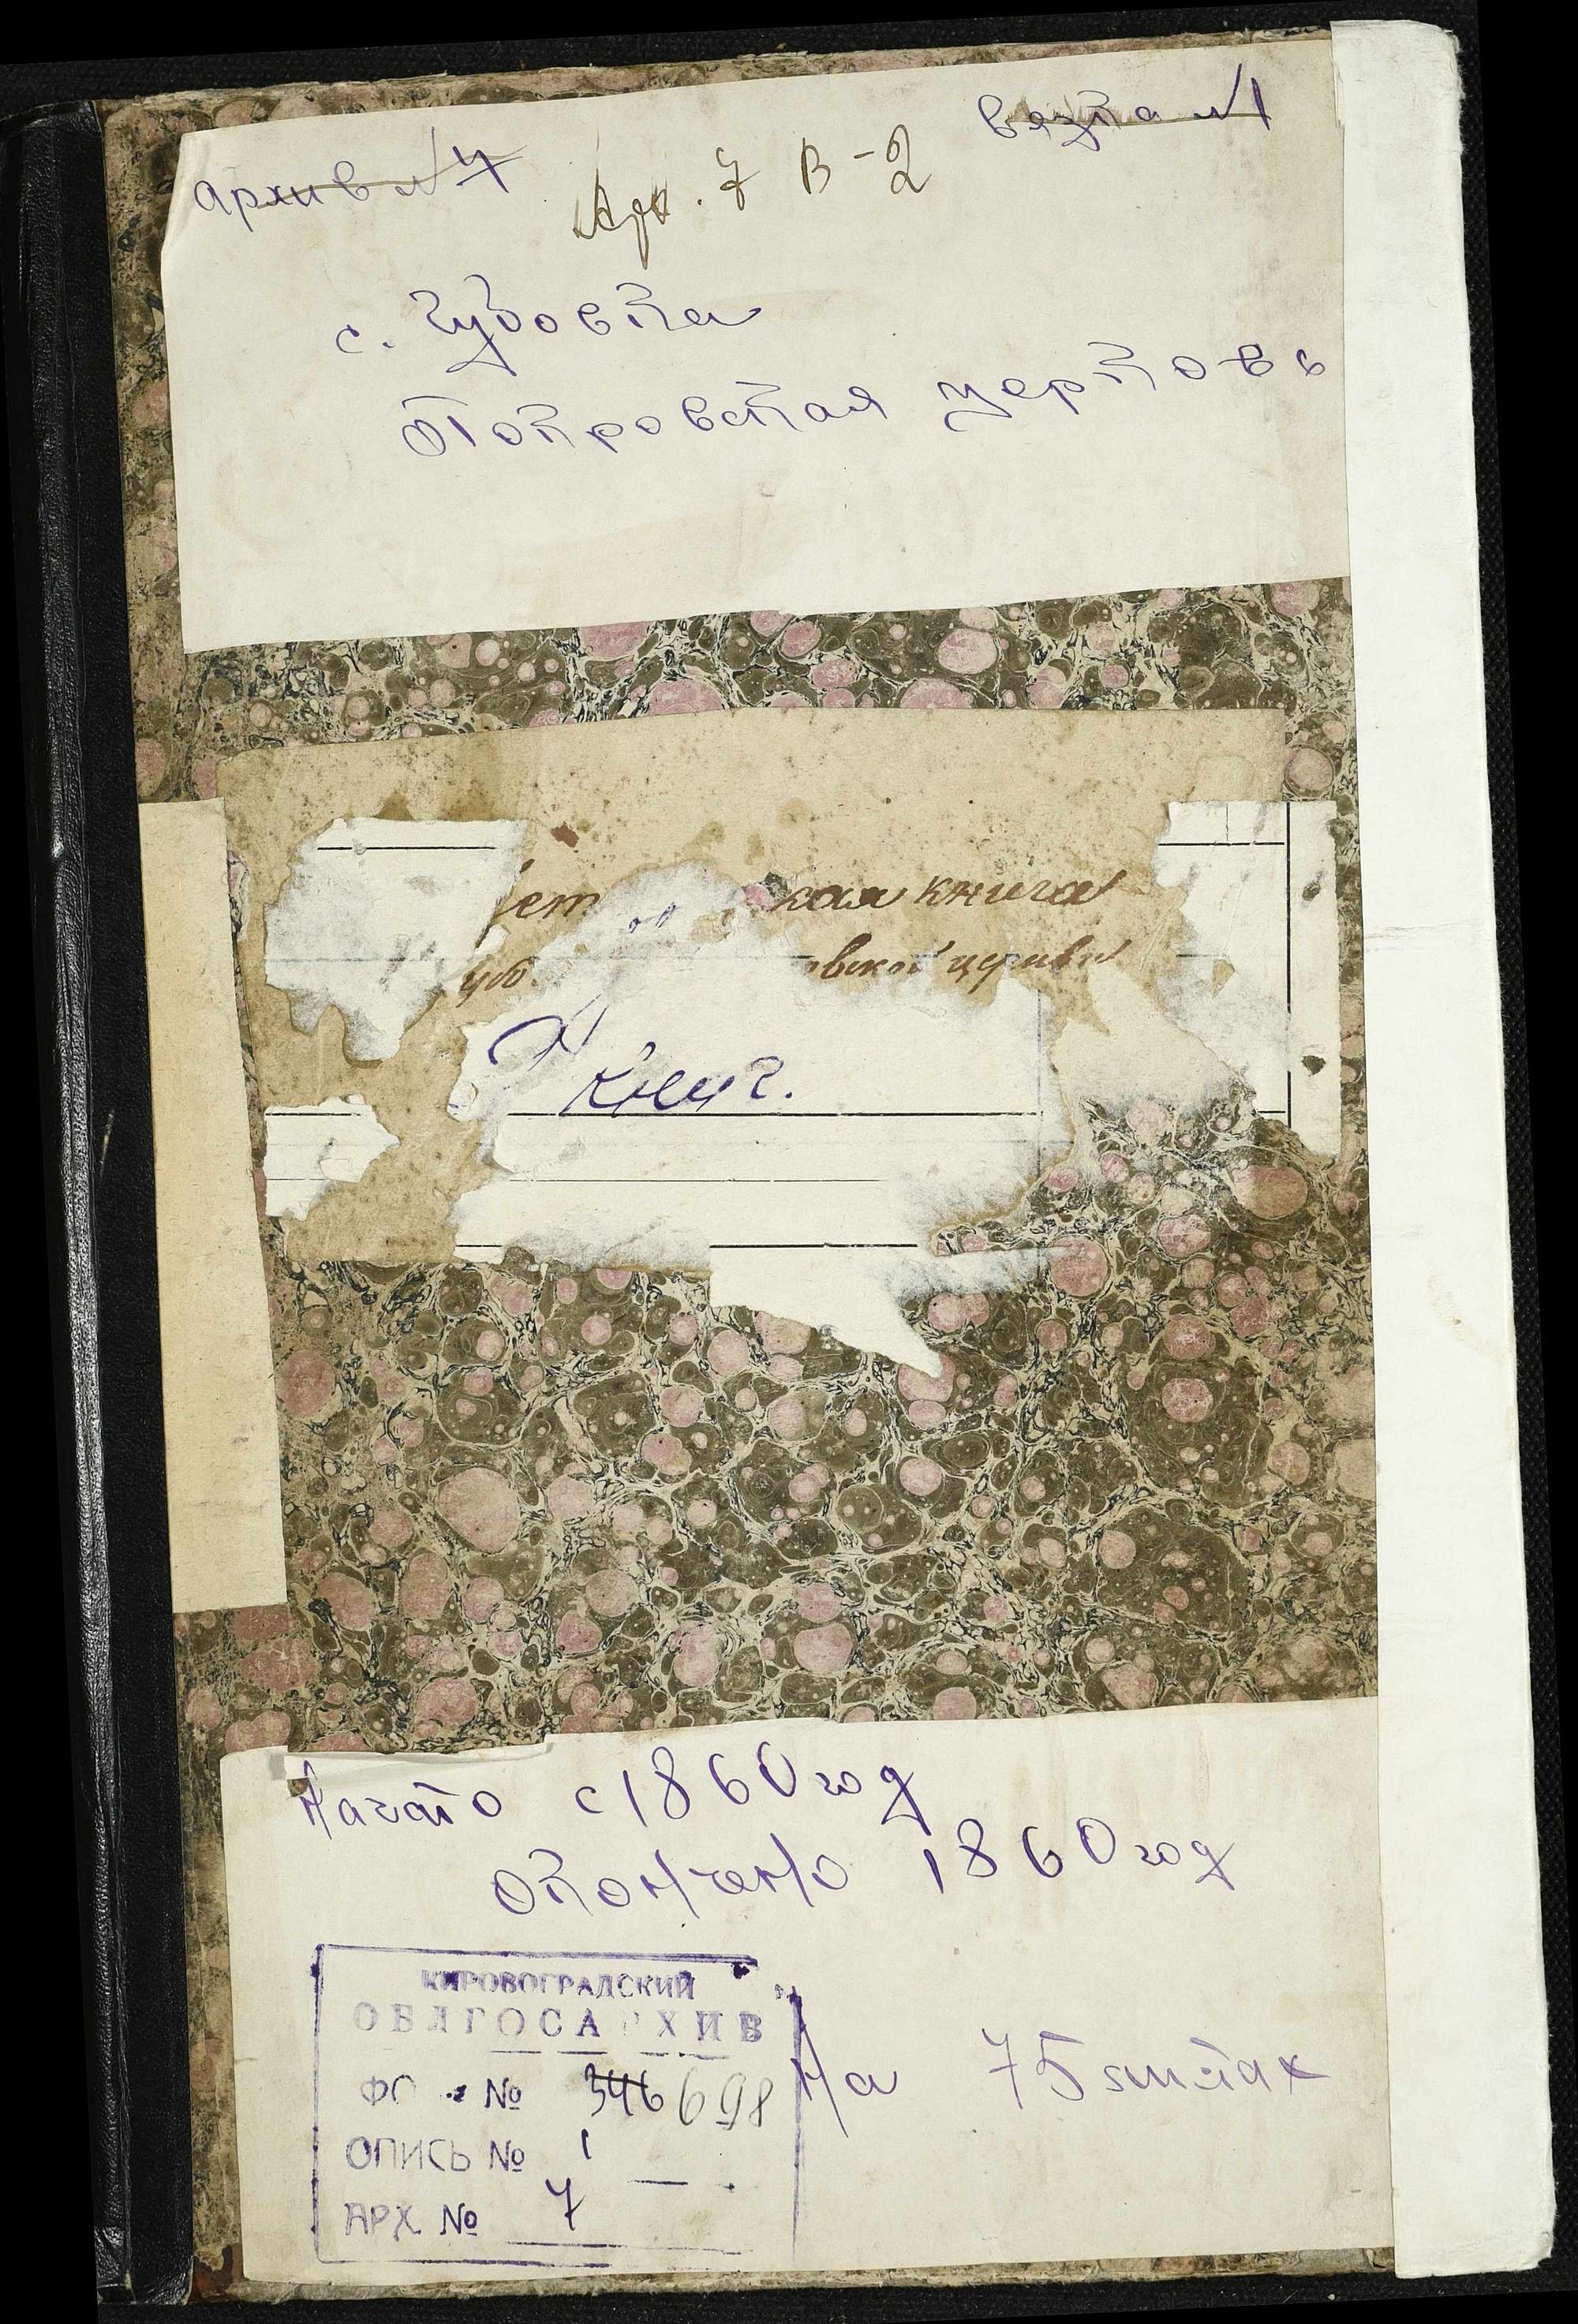 архив №7
Арх. 7 В-2
вязка №1
с. Губовка
Покровская церковь
ет кая книга
убо овской церкви
книг.
Начато с 1860 год
окончено 1860 год
КИРОВОГРАДСКИЙ
ОБЛГОСА ХИВ
ФО № 346 698
ОПИСЬ № 1
АРХ. № 7
На 75 листах